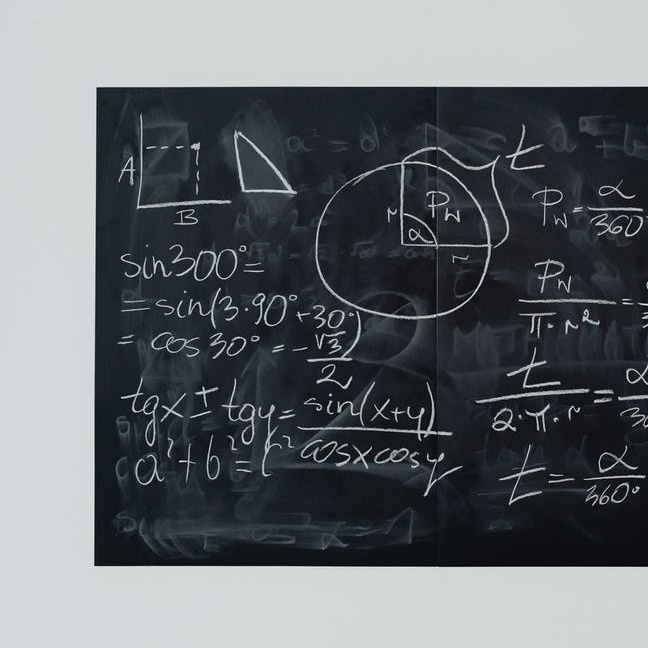 A
B
sin300°=
= sin(3·90°+30°)
= cos30° = -√3/2
tgx ± tgy = sin(x+y)/cosxcosy
a²+b²=c²
t
r
P_W
α
r
P_W = α/360°
P_W/π·r² =
t/2·π·r = α/36
t = α/360°